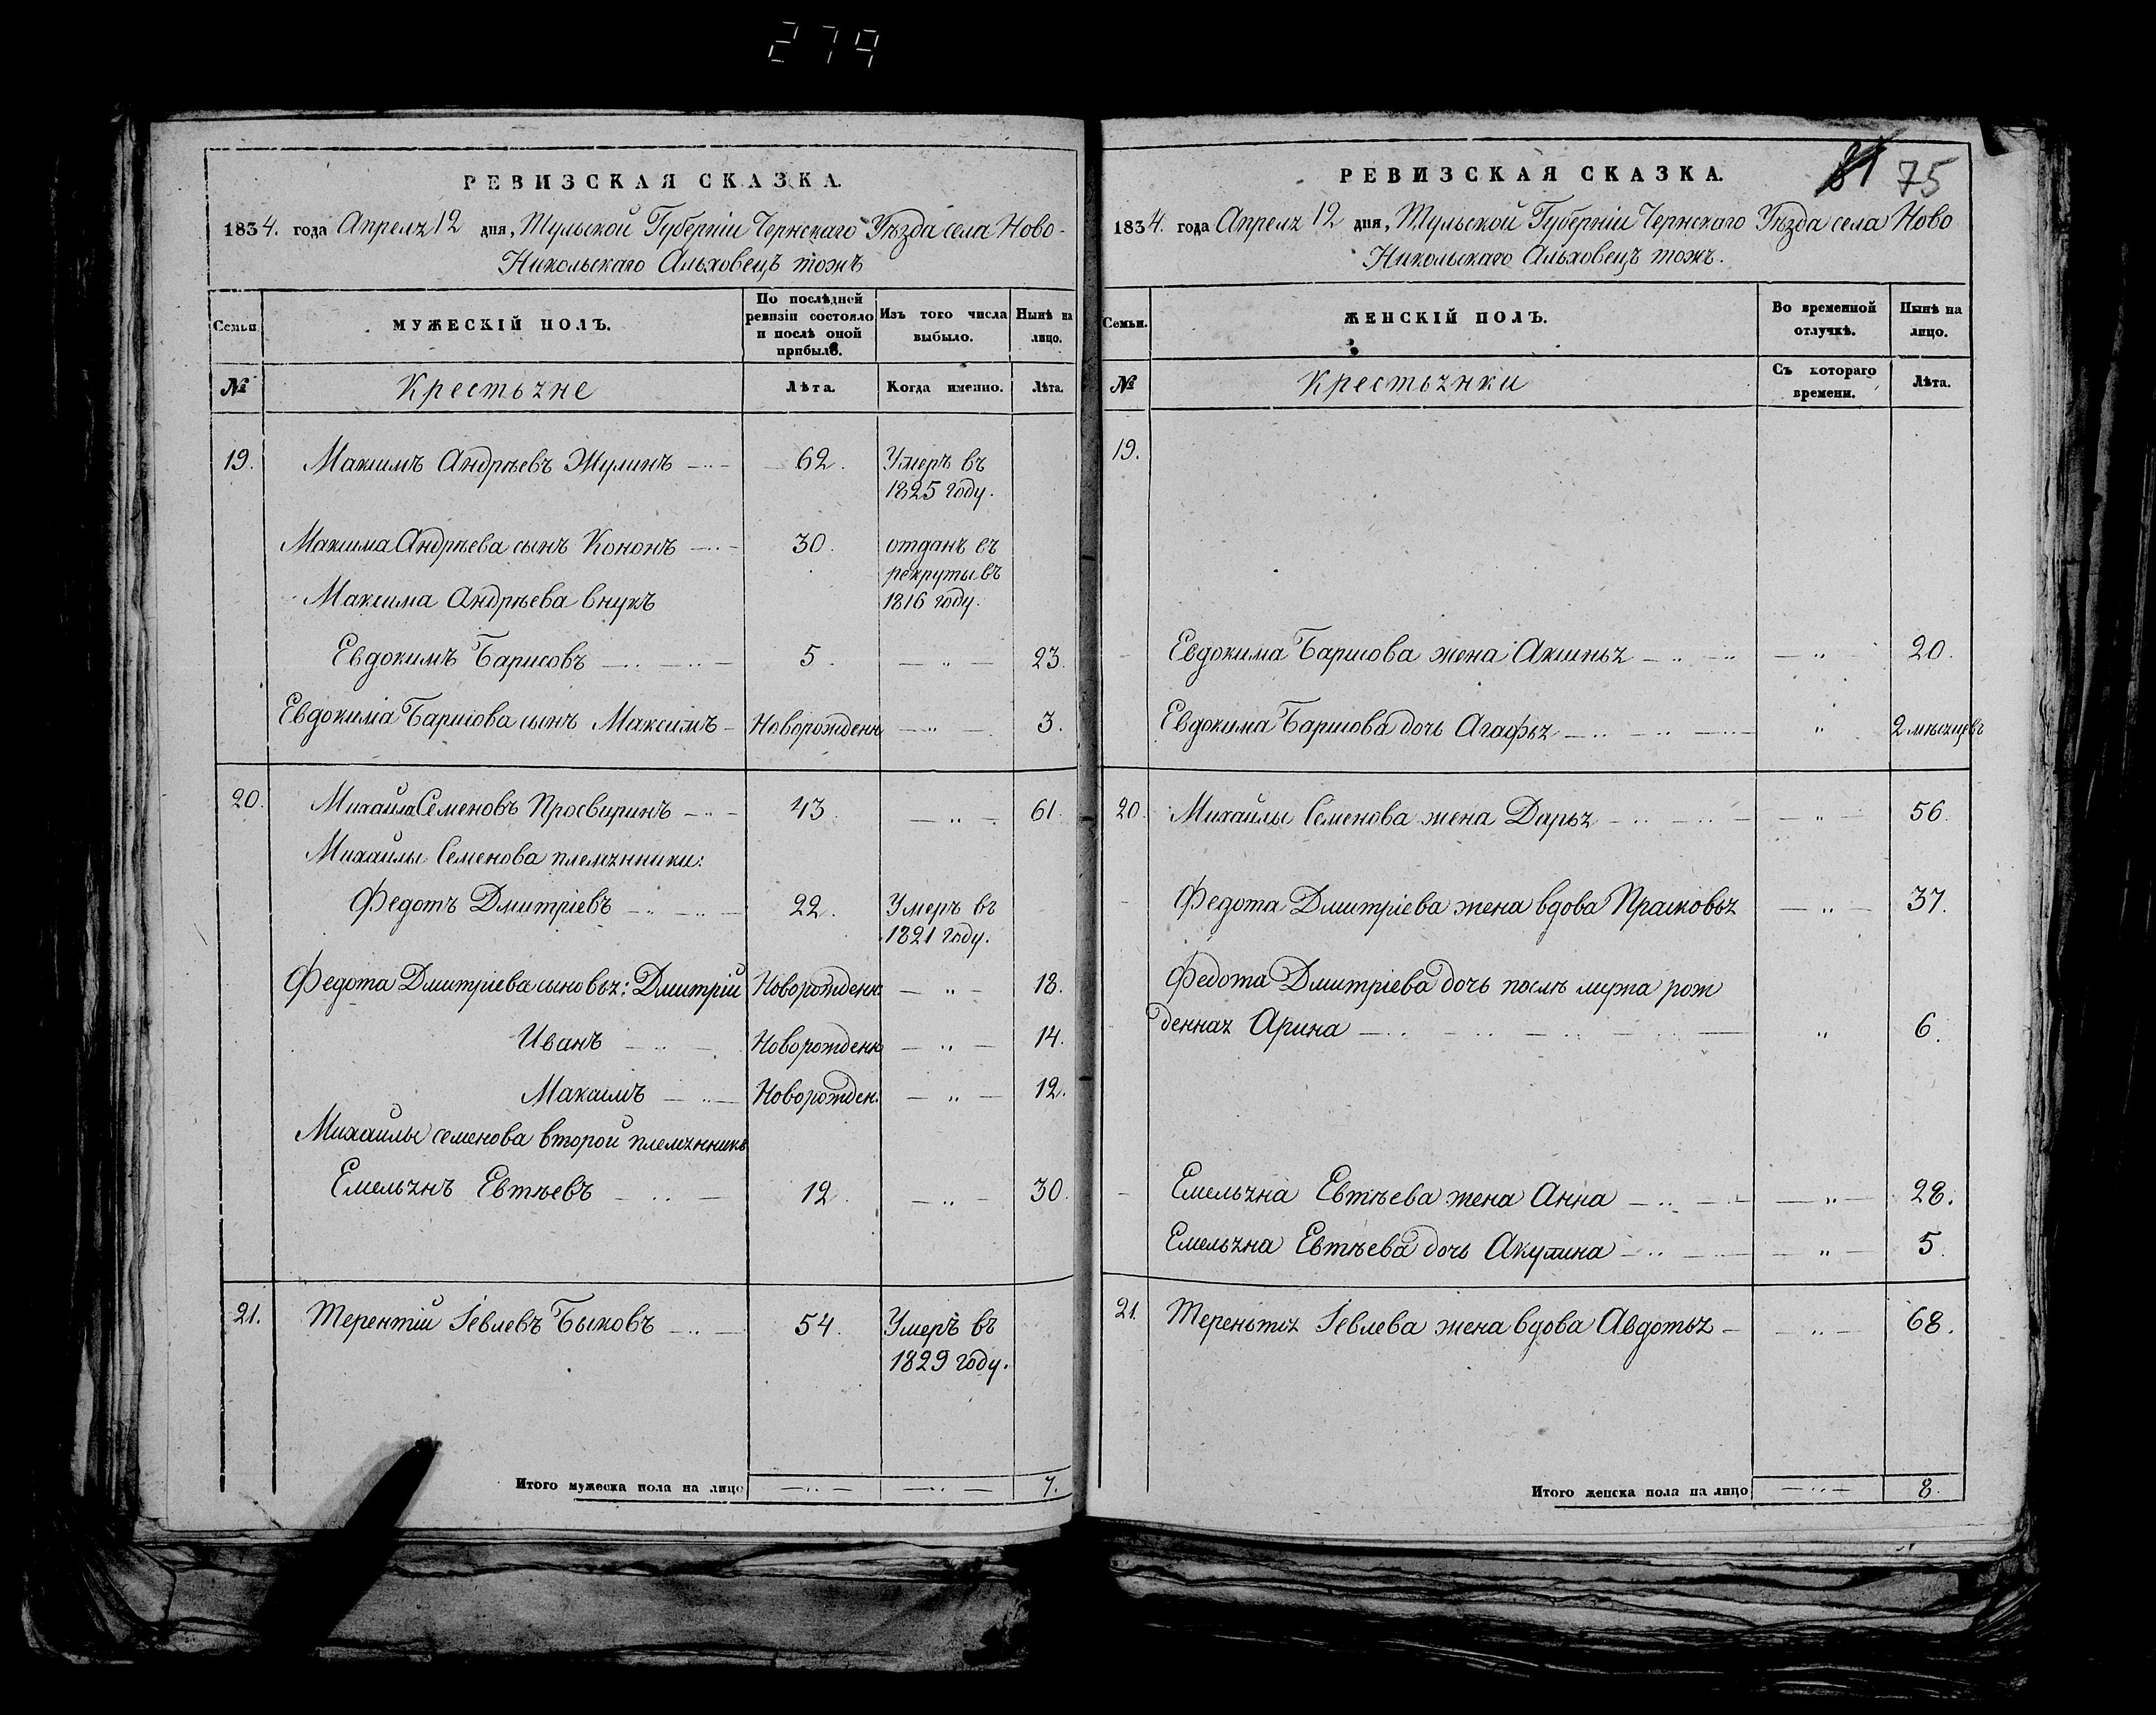 279
РЕВИЗСКАЯ СКАЗКА.
1834. года Апреля 12 дня, Тульской Губерніи Чернскаго Уѣзда села Ново-
Никольскаго Альховецъ тожъ
Семьи.
МУЖЕСКІЙ ПОЛЪ.
По послѣдней ревизіи состояло и послѣ оной прибыло.
Изъ того числа выбыло.
Нынѣ на лицо.
№ Крестьяне Лѣта. Когда именно. Лѣта.
19. Максимъ Андрѣевъ Жулинъ 62. Умеръ въ
1825 году.
Максима Андрѣева сынъ Кононъ 30. отданъ въ
рекруты въ
Максима Андрѣева внукъ 1816 году.
Евдокимъ Барисовъ 5. 23.
Евдокима Барисова сынъ Максимъ Новорожденн 3.
20. Михайла Семеновъ Просвиринъ 43. 61.
Михайлы Семенова племянники:
Федотъ Дмитріевъ 22. Умеръ въ
1821 году.
Федота Дмитріева сыновья: Дмитрій Новорожденн. 18.
Иванъ Новорожденн 14.
Максимъ Новорожден. 12.
Михайлы семенова второй племянникъ
Емельянъ Евтѣевъ 12. 30.
21. Терентій Іевлевъ Быковъ 54. Умеръ въ
1829 году.
Итого мужеска пола на лицо 7.
81 75
РЕВИЗСКАЯ СКАЗКА.
1834. года Апреля 12 дня, Тульской Губерніи Чернскаго Уѣзда села Ново
Никольскаго Альховецъ тожъ.
Семьи.
ЖЕНСКІЙ ПОЛЪ.
Во временной отлучкѣ.
Нынѣ на лицо.
№ Крестьянки Съ котораго времени. Лѣта.
19.
Евдокима Барисова жена Аксинья 20.
Евдокима Барисова дочь Агафья 2 мѣсяцевъ
20. Михайлы Семенова жена Дарья 56.
Федота Дмитріева жена вдова Прасковья 37.
Федота Дмитріева дочь послѣ мужа рож
денная Арина 6.
Емельяна Евтѣева жена Анна 28.
Емельяна Евтѣева дочь Акулина 5.
21. Терентья Іевлева жена вдова Авдотья 68.
Итого женска пола на лицо 8.